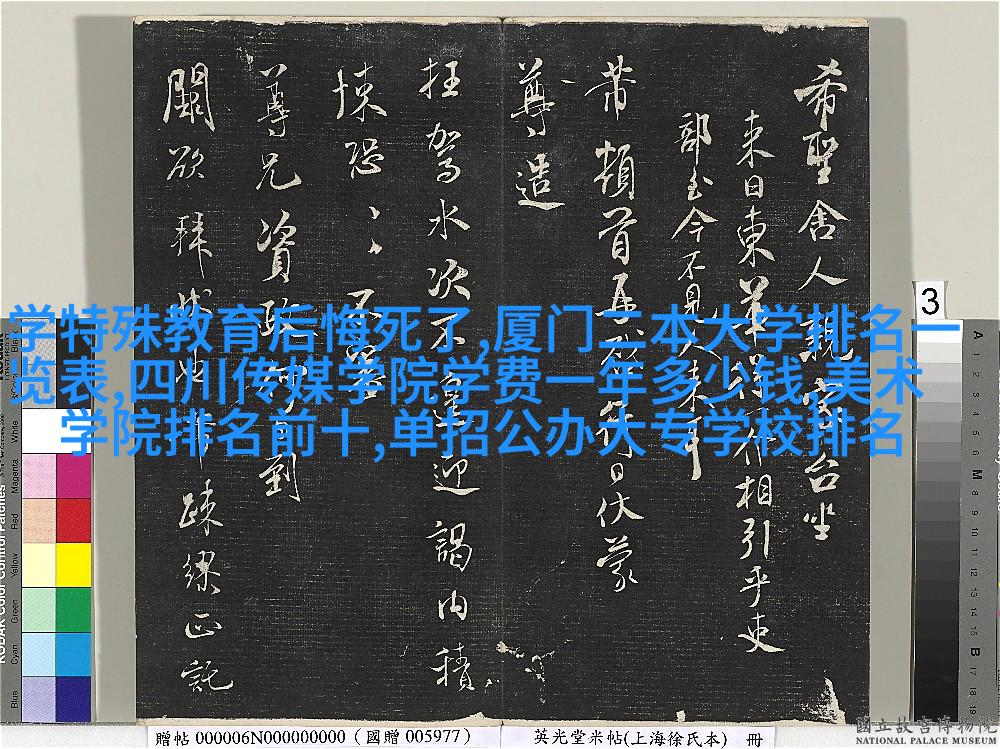 希聖舍人親家台坐
来日東華得作相引乎吏
部玉今不見
芾頓首再
日伏蒙
尊造
枉驾水次不遑迎謁内積
悚恐
尊兄資政
到
闕欲拜
疎缪正託
学特殊教育后悔死了,厦门二本大学排名一
览表,四川传媒学院学费一年多少钱,美术
学院排名前十,单招公办大专学校排名
3
KODAK Color Control Patches
Blue
Cyan
Green
Yellow
Red
Magenta
White
A 1 2 3 4 5 6 M 8 9 10 11 12 13 14 15 B 17 18 19
贈帖 000006N000000000 (國贈 005977)
英光堂米帖(上海徐氏本) 冊
國立故宮博物院
NATIONAL PALACE MUSEUM